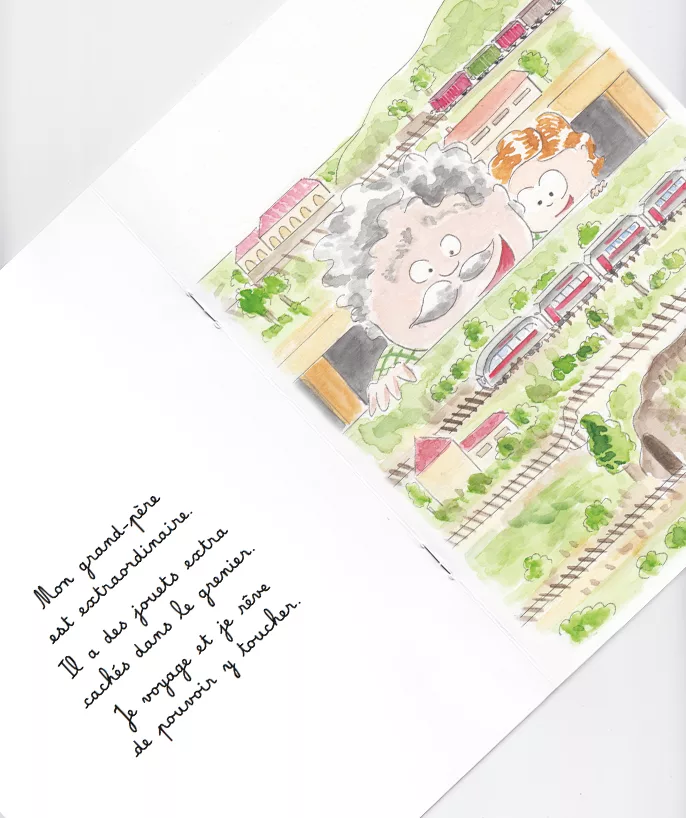 Mon grand-père
est extraordinaire.
Il a des jouets extra
cachés dans le grenier.
Je voyage et je rêve
de pouvoir y toucher.